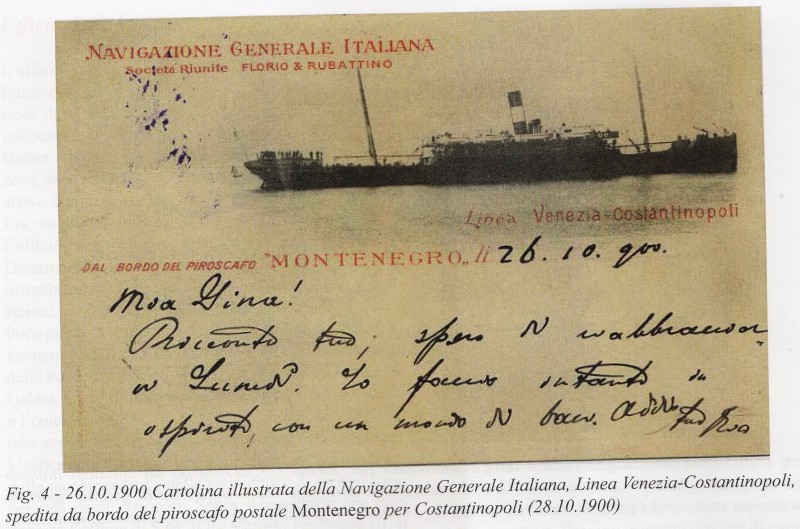 NAVIGAZIONE GENERALE ITALIANA
Società Riunite FLORIO & RUBATTINO
Linea Venezia-Costantinopoli
DAL BORDO DEL PIROSCAFO "MONTENEGRO„ li 26. 10. 900.
Mia Gina!
tuo, spero di riabbracciar
Lunedì. Lo faccio intanto in
ispirito, con un mondo di baci. Addio
tuo
Fig. 4 - 26.10.1900 Cartolina illustrata della Navigazione Generale Italiana, Linea Venezia-Costantinopoli,
spedita da bordo del piroscafo postale Montenegro per Costantinopoli (28.10.1900)